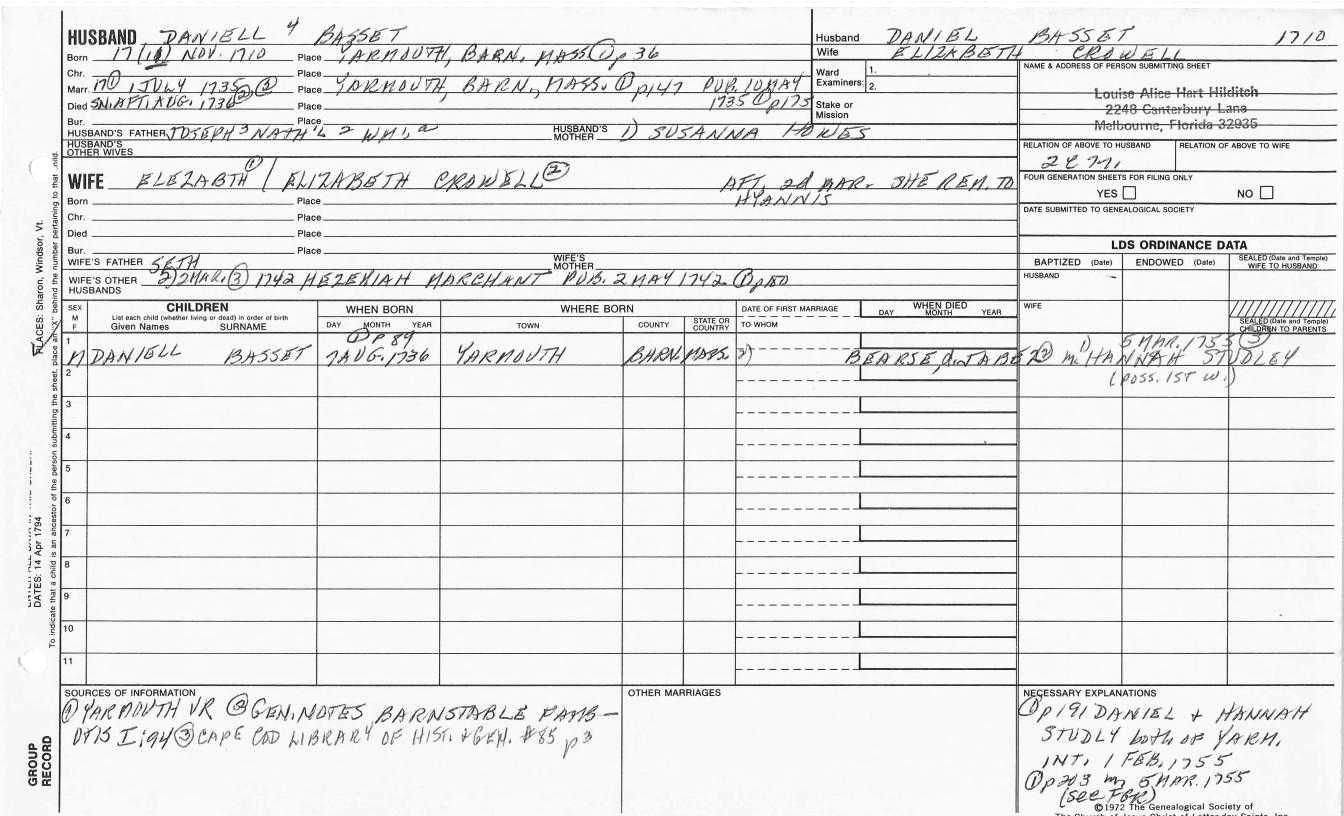 HUSBAND DANIELL 4 BASSET
Born 17(11) NOV. 1710 Place YARMOUTH, BARN. MASS ① p 36
Chr. Place
Marr. 17① 1 JULY 1735 ②,③ Place YARMOUTH, BARN., MASS. ① p147 PUB. 10 MAY
Died SN. AFT. AUG. 1736 Place 1735 ① p175
Bur. Place
HUSBAND'S FATHER JOSEPH 3 NATH'L 2 WM 1, a HUSBAND'S MOTHER 1) SUSANNA HOWES
HUSBAND'S OTHER WIVES
Husband DANIEL BASSET 1710
Wife ELIZABETH CROWELL
Ward Examiners: 1.
2.
Stake or Mission
NAME & ADDRESS OF PERSON SUBMITTING SHEET
Louise Alice Hart Hilditch
2248 Canterbury Lane
Melbourne, Florida 32935
RELATION OF ABOVE TO HUSBAND RELATION OF ABOVE TO WIFE
FOUR GENERATION SHEETS FOR FILING ONLY
YES NO
DATE SUBMITTED TO GENEALOGICAL SOCIETY
WIFE ELEZABTH ① / ELIZABETH CROWELL ② AFT. 2d MAR. SHE REM. TO
Born Place HYANNIS
Chr. Place
Died Place
Bur. Place
WIFE'S FATHER SETH WIFE'S MOTHER
WIFE'S OTHER HUSBANDS 2) 2 MAR. ③ 1742 HEZEKIAH MARCHANT PUB. 2 MAY 1742 ① p180
LDS ORDINANCE DATA
BAPTIZED (Date) ENDOWED (Date) SEALED (Date and Temple) WIFE TO HUSBAND
HUSBAND
WIFE
SEALED (Date and Temple) CHILDREN TO PARENTS
SEX M F CHILDREN WHEN BORN WHERE BORN DATE OF FIRST MARRIAGE WHEN DIED
List each child (whether living or dead) in order of birth
Given Names SURNAME DAY MONTH YEAR TOWN COUNTY STATE OR COUNTRY TO WHOM DAY MONTH YEAR
① P 89 1) 5 MAR. 1755 ③
1 M DANIELL BASSET 7 AUG. 1736 YARMOUTH BARN. MASS. 2) BEARSE, d. JABEZ ② m. HANNAH STUDLEY
2 (POSS. 1ST W.)
3
4
5
6
7
8
9
10
11
SOURCES OF INFORMATION
① YARMOUTH VR ② GEN. NOTES BARNSTABLE FAMS –
OTIS I:94 ③ CAPE COD LIBRARY OF HIST. & GEN. #85 p3
OTHER MARRIAGES
NECESSARY EXPLANATIONS
① p 191 DANIEL & HANNAH
STUDLY both OF YARM.
INT. 1 FEB. 1755
① p203 m. 5 MAR. 1755
(see FGR)
©1972 The Genealogical Society of
The Church of Jesus Christ of Latter-day Saints, Inc.
PLACES: Sharon, Windsor, Vt.
DATES: 14 Apr 1794
To indicate that a child is an ancestor of the person submitting the sheet, place an "X" behind the number pertaining to that child.
GROUP RECORD